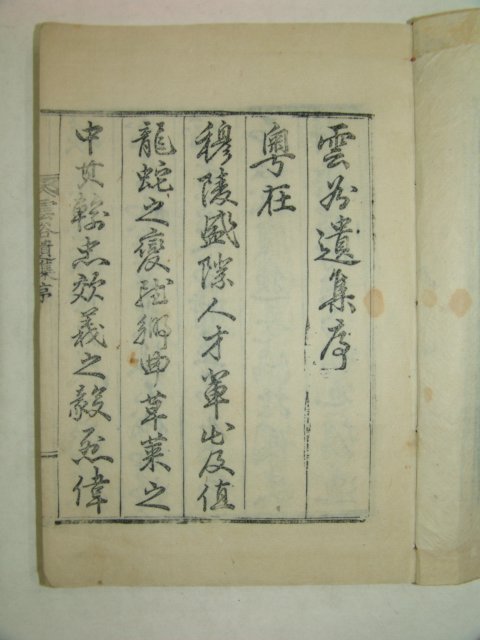 雲谷遺集序
粤在
穆陵盛際人才輩出及值
龍蛇之變雖鄉曲草萊之
中其忠效義之毅烈偉
雲谷遺集序